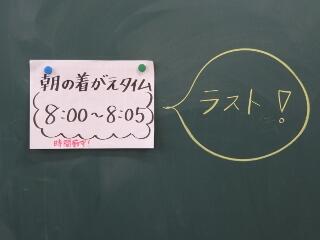 朝の着がえタイム
8:00～8:05
時間厳守!
ラスト!